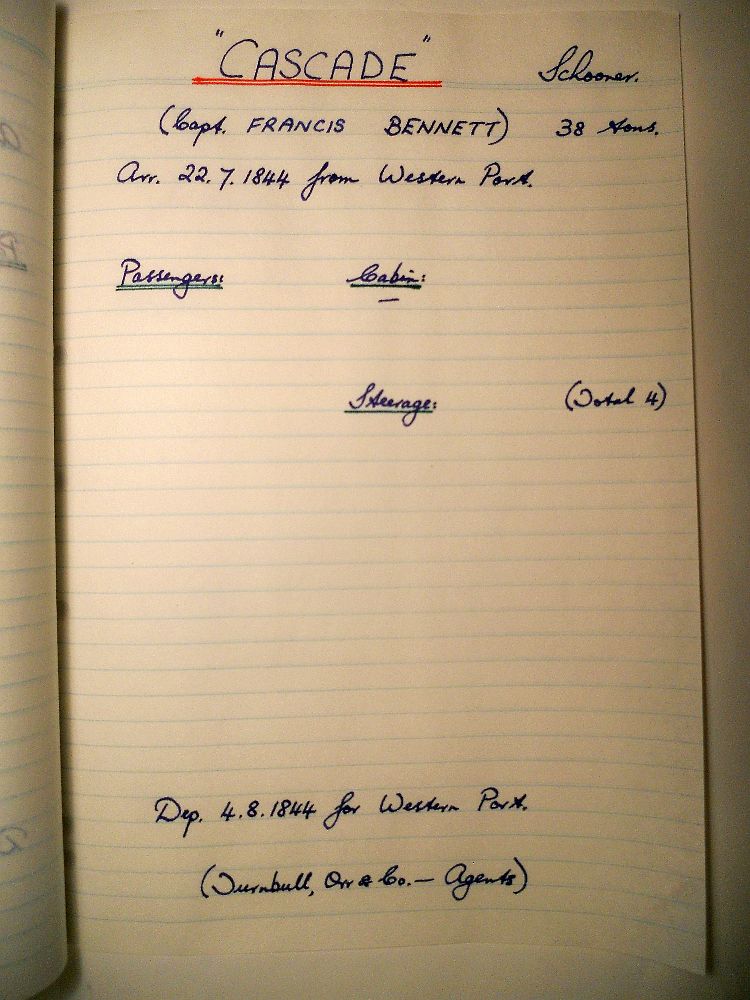 "CASCADE" Schooner.
(Capt. FRANCIS BENNETT) 38 tons.
Arr. 22.7.1844 from Western Port.
Passengers: Cabin:
—
Steerage: (Total 4)
Dep. 4.8.1844 for Western Port.
(Turnbull, Orr & Co. — Agents)